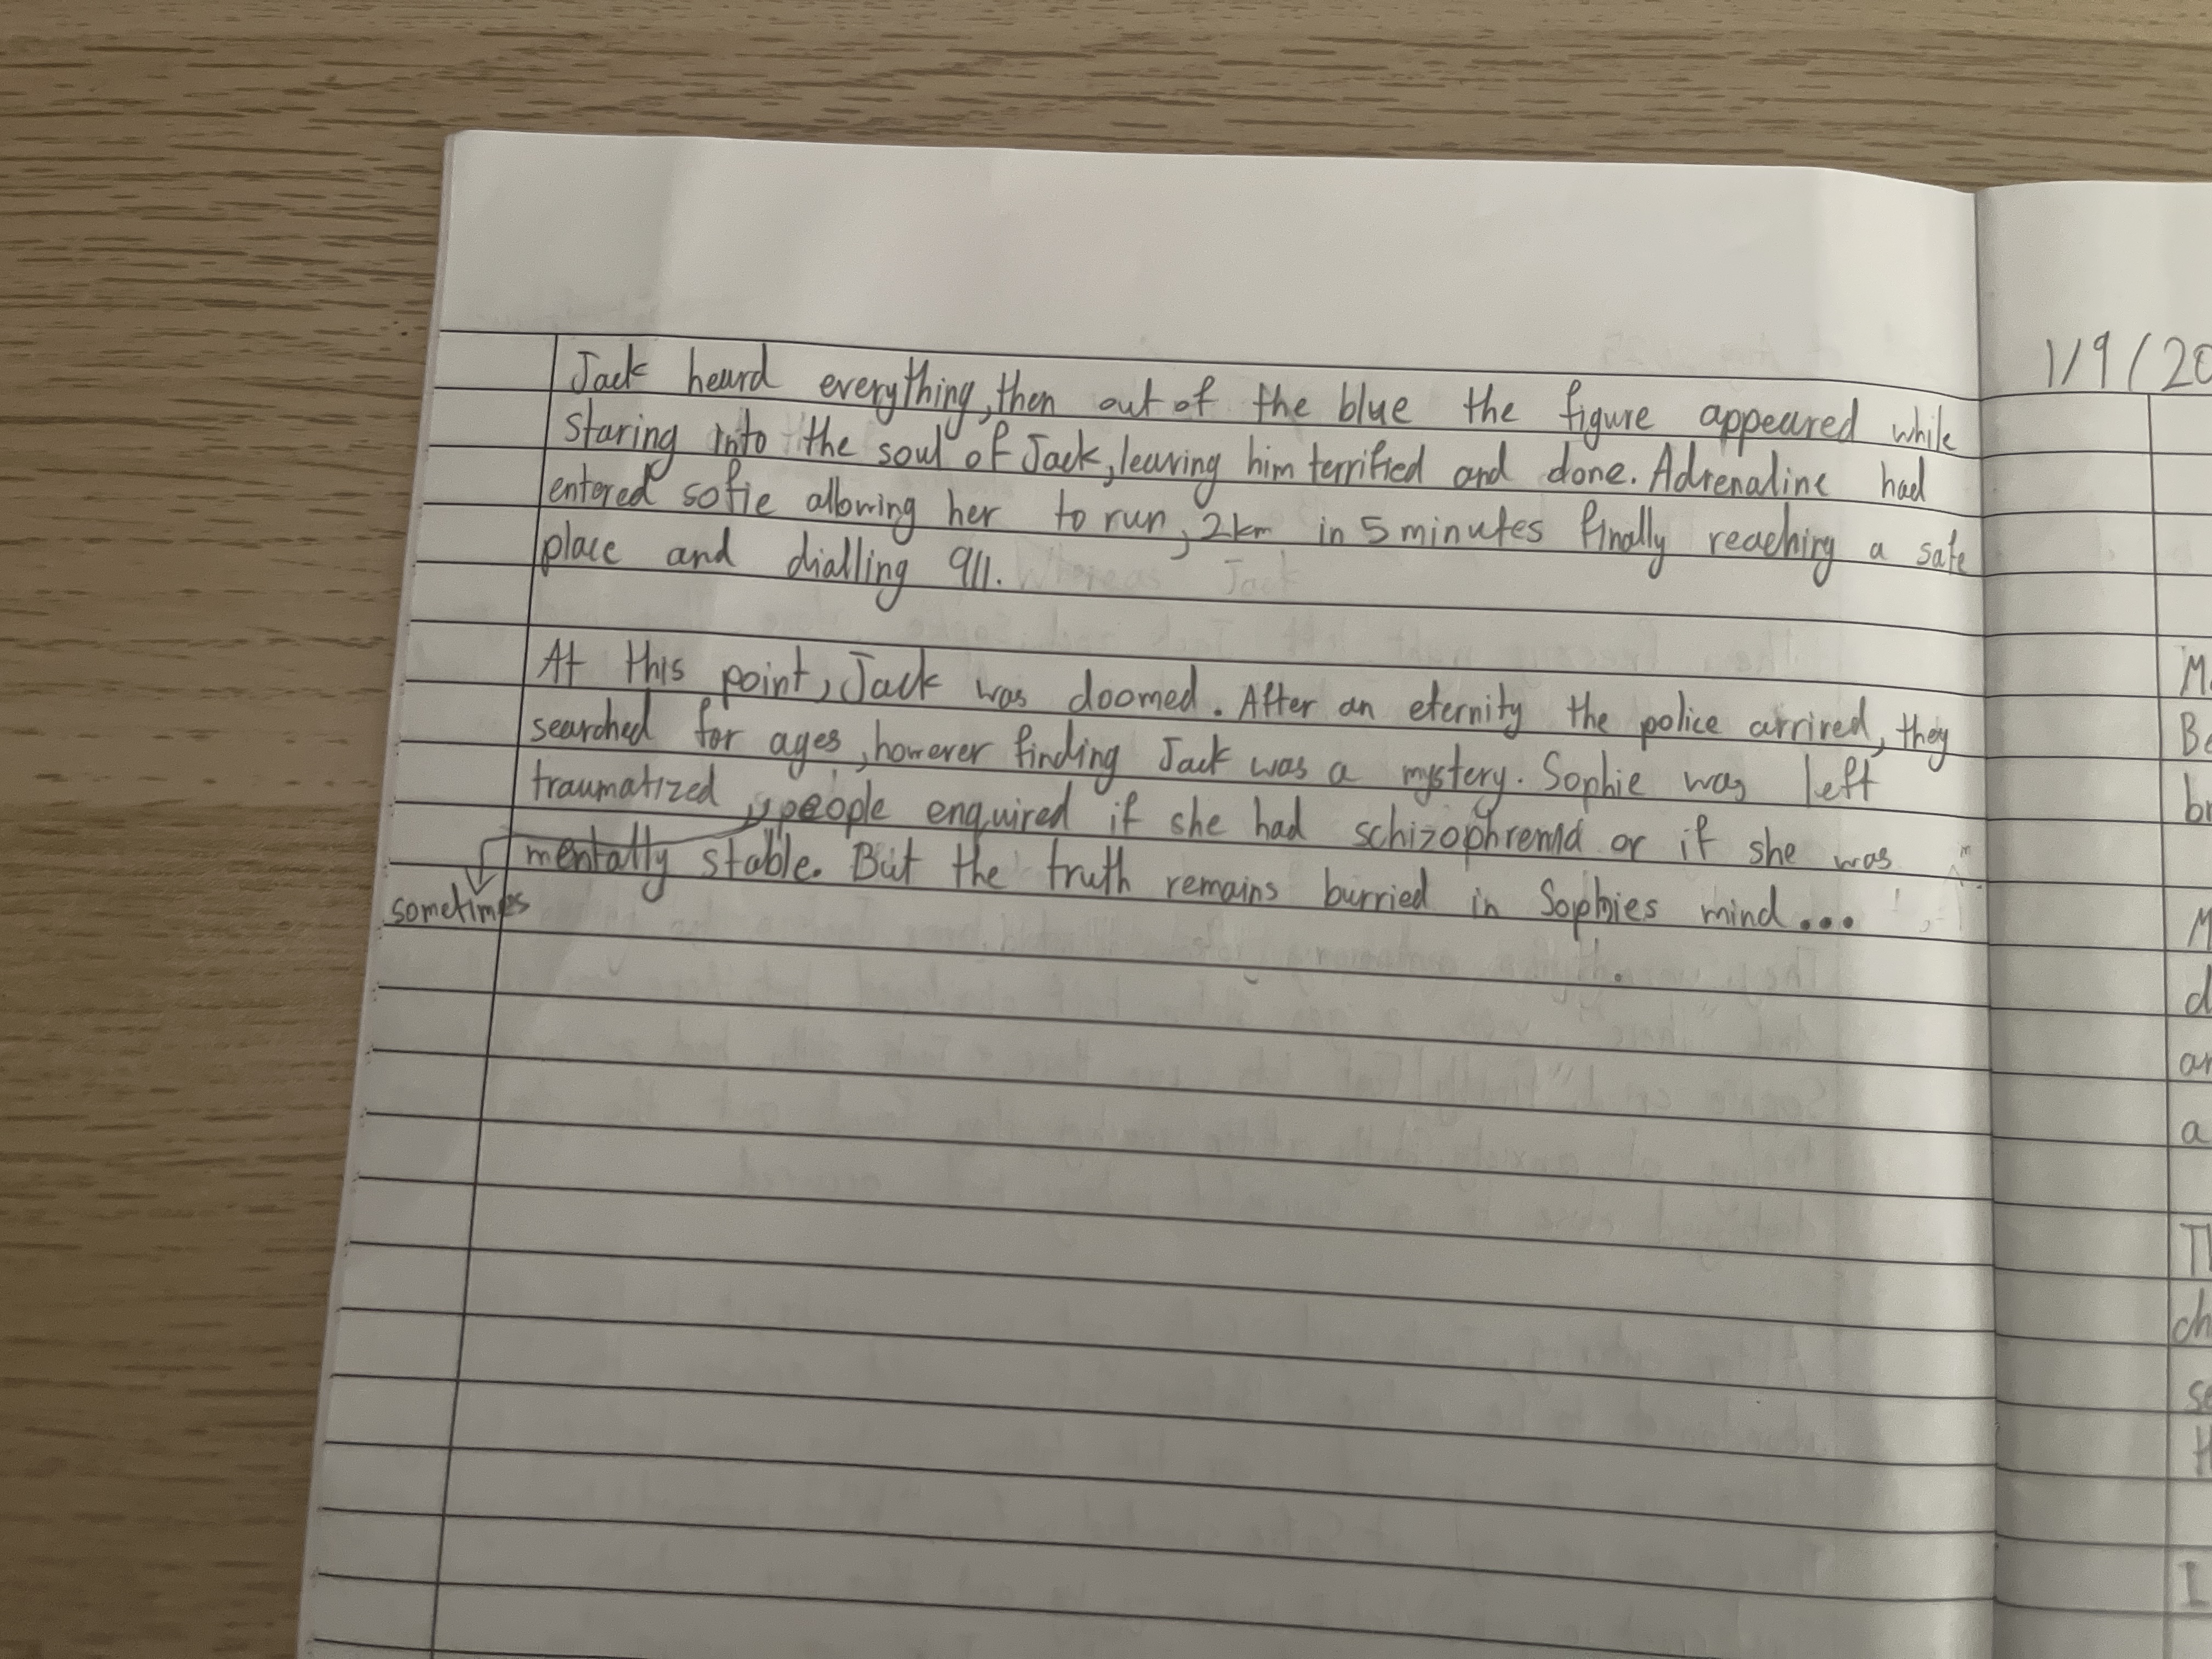 Jack heard everything, then out of the blue the figure appeared while
staring into the soul of Jack, leaving him terrified and done. Adrenaline had
entered sofie allowing her to run, 2km in 5 minutes finally reaching a safe
place and dialling 911.
At this point, Jack was doomed. After an eternity the police arrived, they
searched for ages, however finding Jack was a mystery. Sophie was left
traumatized, people enquired if she had schizophrenia or if she was
mentally stable. But the truth remains burried in Sophies mind...
sometimes
1/9/20
M
Be
br
M
d
an
a
Th
ch
se
H
I